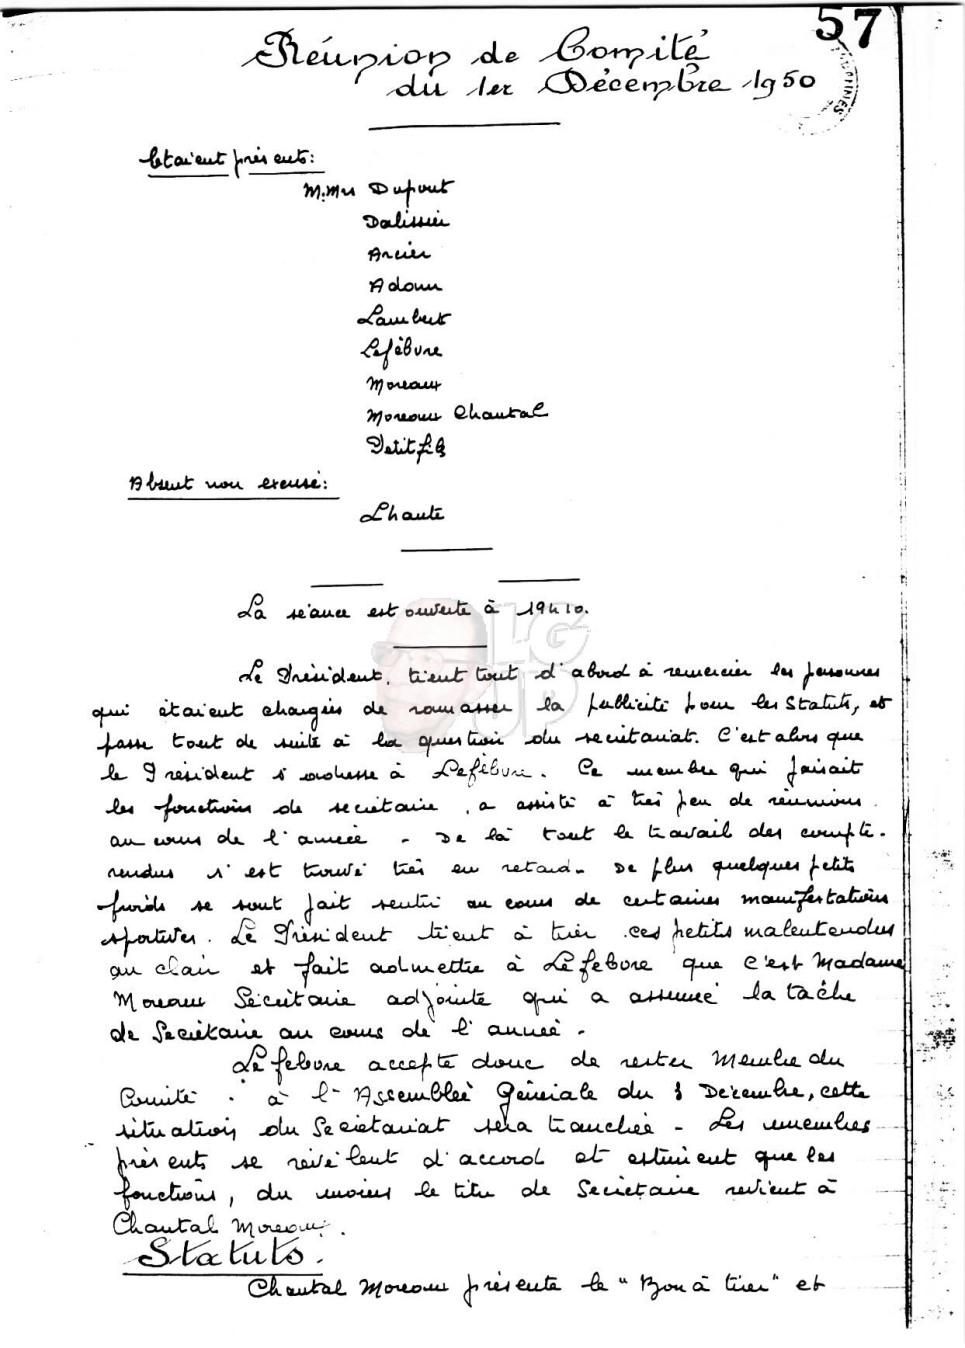 57
Réunion de Comité
du 1er Décembre 1950
Etaient présents:
M.Mrs Dupont
Dalissier
Arcier
Adam
Lambert
Lefèbvre
Moreaux
Moreau Chantal
Petitfils
Absent non excusé:
Lhaute
La séance est ouverte à 19h10.
LG
UP
Le Président, tient tout d'abord à remercier les personnes
qui étaient chargées de ramasser la publicité pour les Statuts, et
passe tout de suite à la question du secrétariat. C'est alors que
le Président s'adresse à Lefèbvre. Ce membre qui faisait
les fonctions de secrétaire, a assisté à très peu de réunions
au cours de l'année - De là tout le travail des compte-
rendus s'est trouvé très en retard - De plus quelques petits
froids se sont fait sentir au cours de certaines manifestations
sportives. Le Président tient à tirer ces petits malentendus
au clair et fait admettre à Lefebvre que c'est Madame
Moreau Secrétaire adjointe qui a assumé la tâche
de Secrétaire au cours de l'année.
Lefebvre accepte donc de rester Membre du
Comité. à l'Assemblée Générale du Décembre, cette
situation du Secrétariat sera tranchée - Les membres
présents se révèlent d'accord et estiment que les
fonctions, du moins le titre de Secrétaire revient à
Chantal Moreau.
Statuts.
Chantal Moreau présente le "Bon à tirer" et